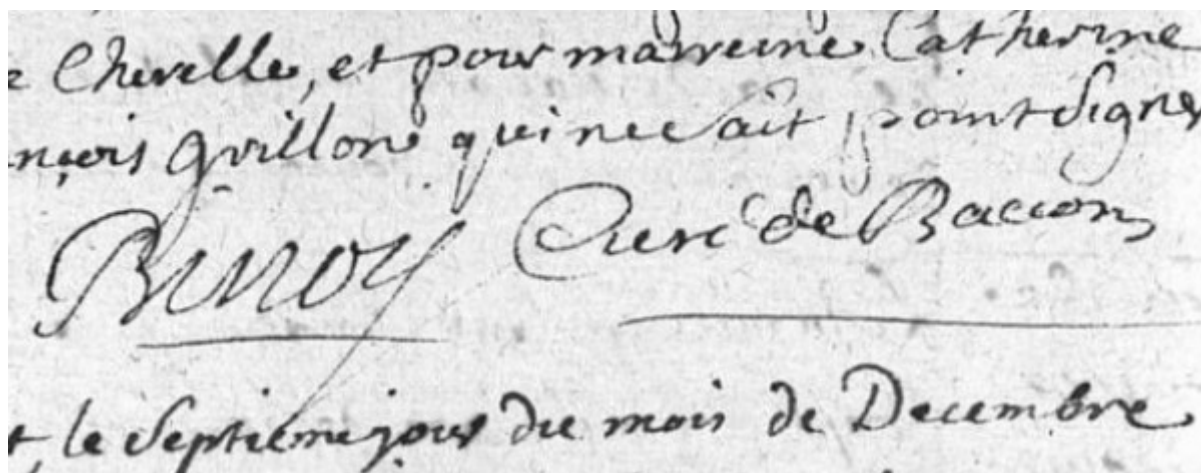 Chevelle, et pour marreine Catherine
nçois Guillon qui ne sait point signer
Curé de Baccon
t, le septieme jour du mois de Decembre